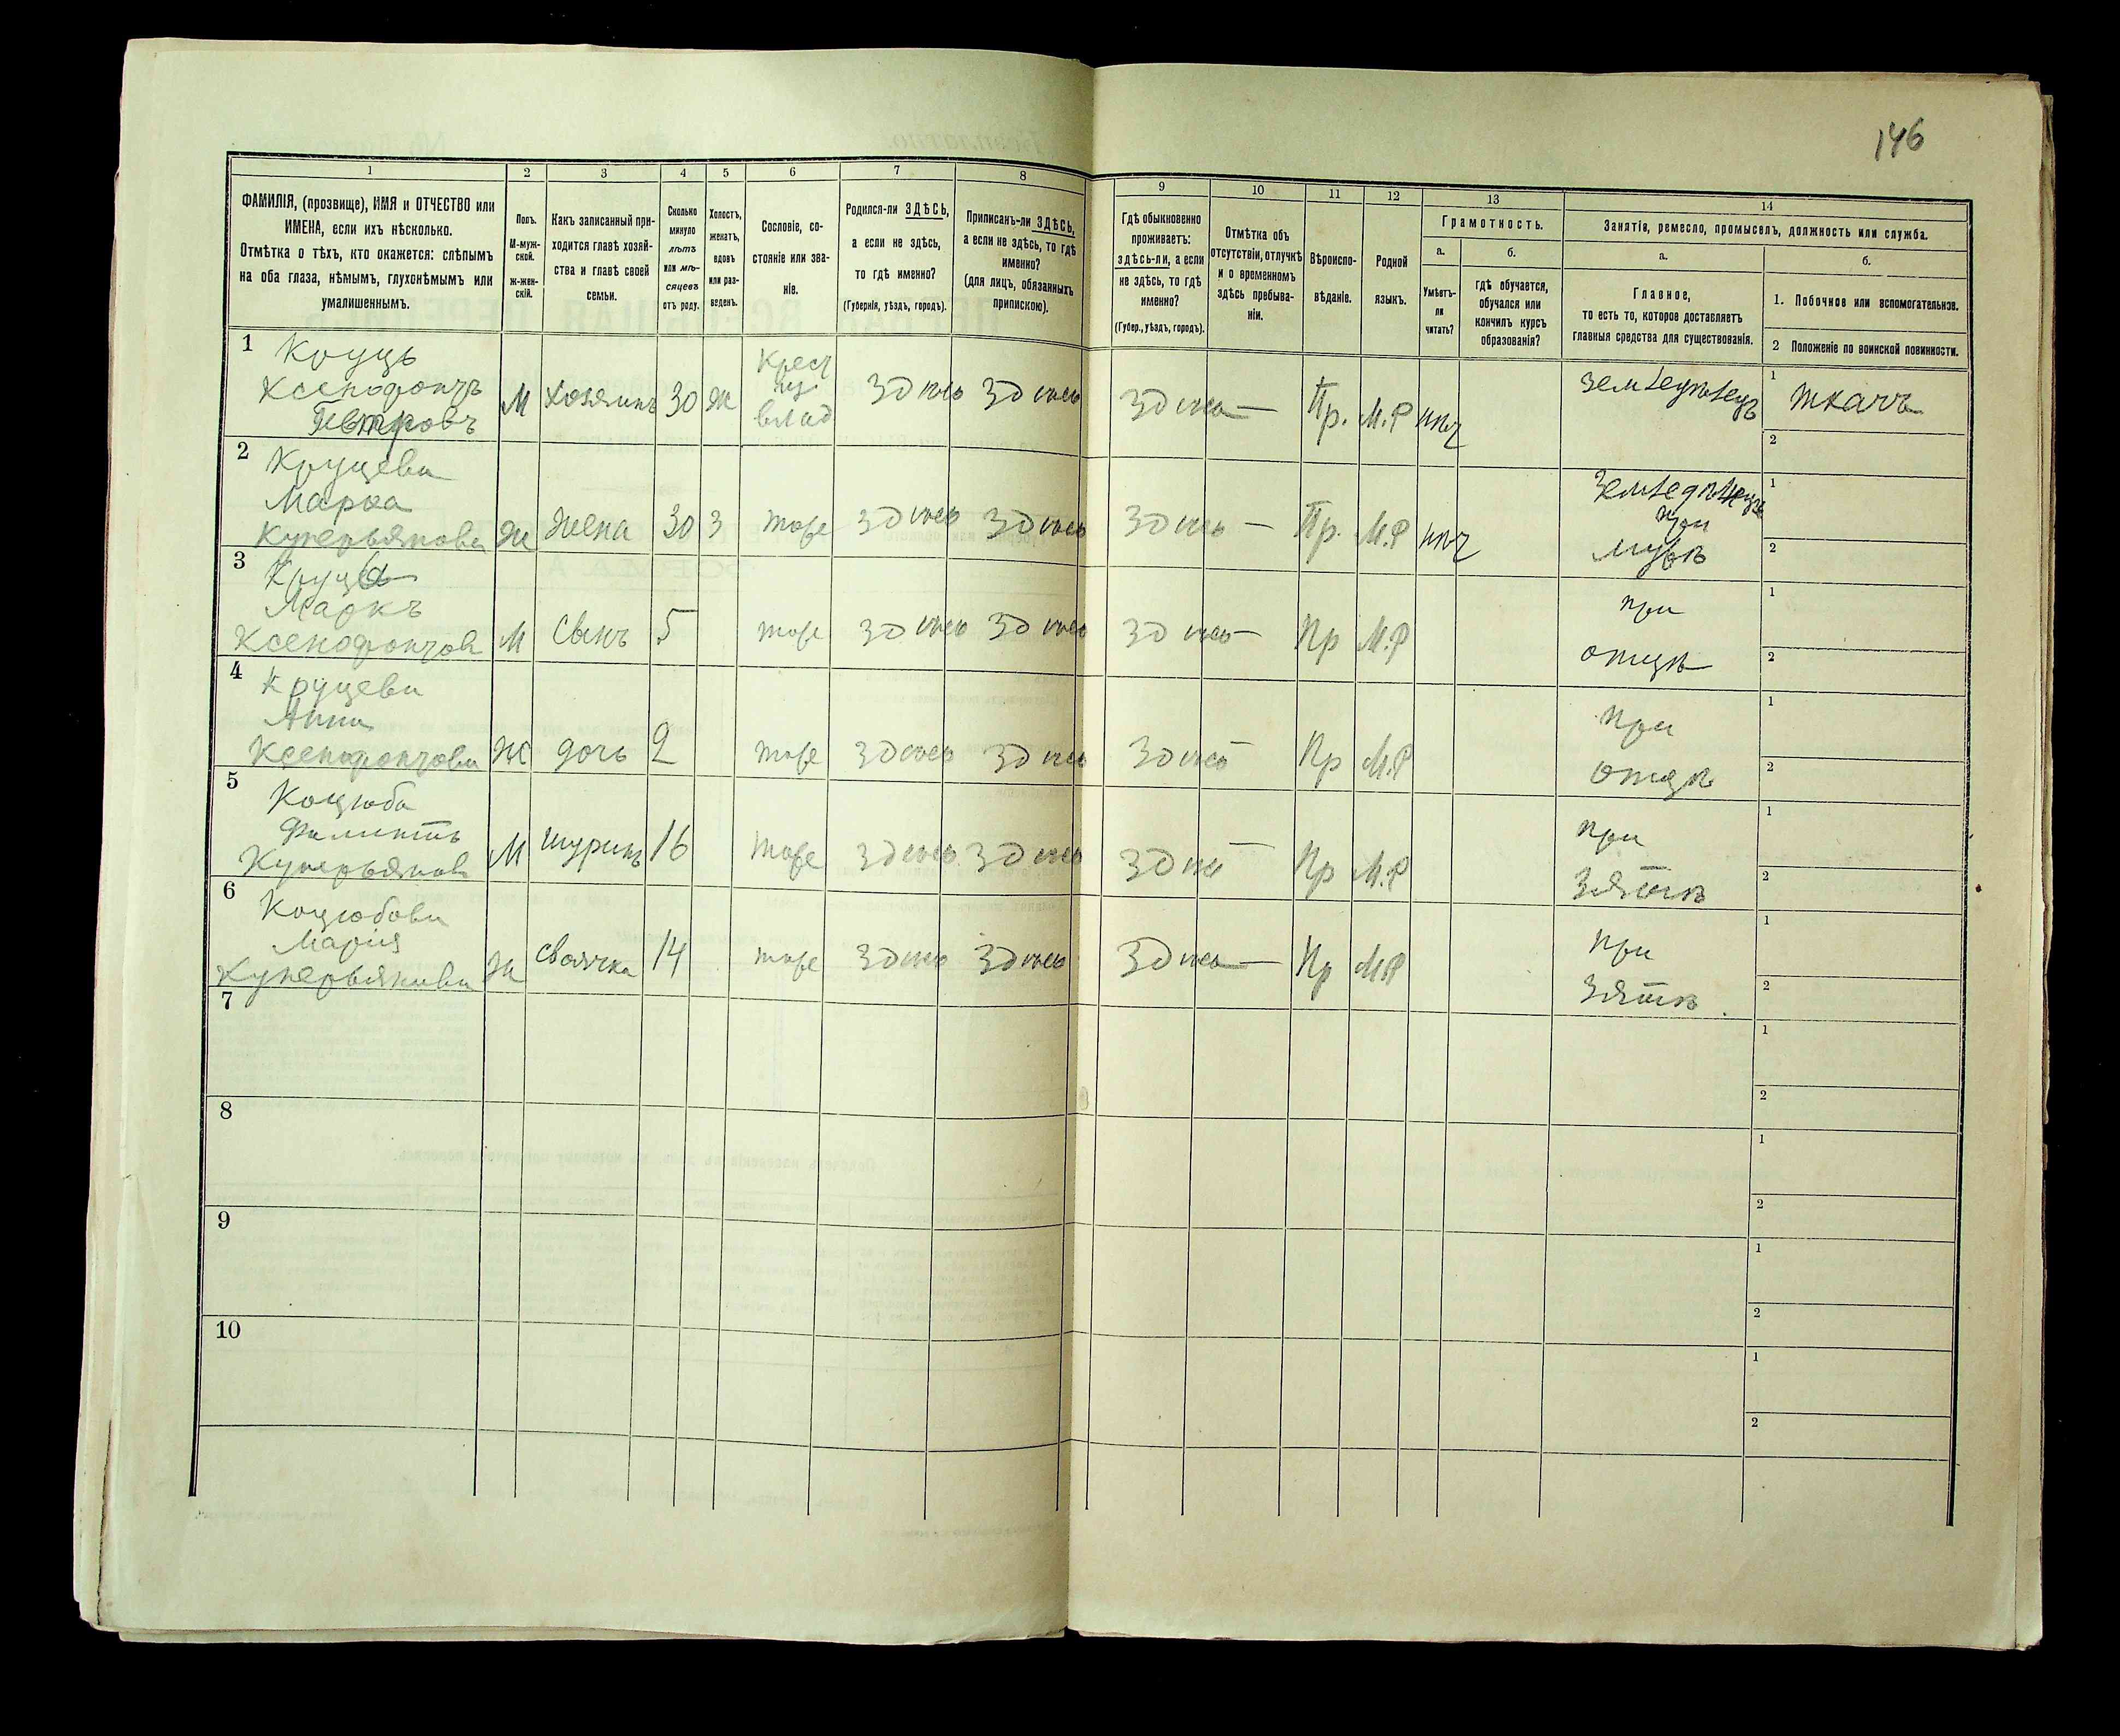 146
1
2
3
4
5
6
7
8
9
10
11
12
13
14
ФАМИЛІЯ, (прозвище), ИМЯ и ОТЧЕСТВО или
ИМЕНА, если ихъ нѣсколько.
Отмѣтка о тѣхъ, кто окажется: слѣпымъ
на оба глаза, нѣмымъ, глухонѣмымъ или
умалишеннымъ.
Полъ.
М-муж-
ской.
ж-жен-
скій.
Какъ записанный при-
ходится главѣ хозяй-
ства и главѣ своей
семьи.
Сколько
минуло
лѣтъ
или мѣ-
сяцевъ
отъ роду.
Холостъ,
женатъ,
вдовъ
или раз-
веденъ.
Сословіе, со-
стояніе или зва-
ніе.
Родился-ли ЗДѢСЬ,
а если не здѣсь,
то гдѣ именно?
(Губернія, уѣздъ, городъ).
Приписанъ-ли ЗДѢСЬ,
а если не здѣсь, то гдѣ
именно?
(для лицъ, обязанныхъ
припискою).
Гдѣ обыкновенно
проживаетъ:
здѣсь-ли, а если
не здѣсь, то гдѣ
именно?
(Губер., уѣздъ, городъ).
Отмѣтка объ
отсутствіи, отлучкѣ
и о временномъ
здѣсь пребыва-
ніи.
Вѣроиспо-
вѣданіе.
Родной
языкъ.
Грамотность.
а.
Умѣетъ-
ли
читать?
б.
гдѣ обучается,
обучался или
кончилъ курсъ
образованія?
Занятія, ремесло, промыселъ, должность или служба.
а.
Главное,
то есть то, которое доставляетъ
главныя средства для существованія.
б.
1. Побочное или вспомогательное.
2 Положеніе по воинской повинности.
1 Круць
Ксенофонтъ
Петровъ
М Хозяинъ 30 Ж Крест
влад здѣсь здѣсь здѣсь — Пр. М.Р нѣт 1 ткачъ
2
2 Круцева
Марѳа
Куперьянова Ж Жена 30 З тоже здѣсь здѣсь здѣсь — Пр. М.Р нѣт
при
мужѣ
1
2
3
Маркъ
Ксенофонтов М Сынъ 5 тоже здѣсь здѣсь здѣсь — Пр М.Р при
отцѣ
1
2
4 Круцева
Анна
Ксенофонтова Ж дочь 2 тоже здѣсь здѣсь здѣсь Пр М.Р при
отцѣ
1
2
5 Коцюба
Филиппъ
Куперьянов М шуринъ 16 тоже здѣсь здѣсь здѣсь — Пр М.Р при
зятѣ
1
2
6 Коцюбова
Марія
Куперьянова Ж своячка 14 тоже здѣсь здѣсь здѣсь — Пр М.Р при
зятѣ
1
2
7
1
2
8
1
2
9
1
2
10
1
2